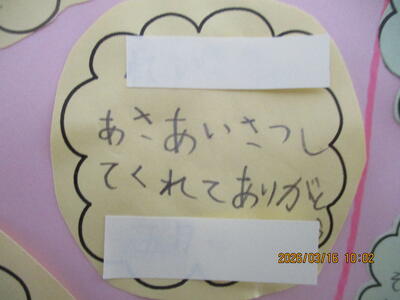 あさあいさつし
てくれてありがと
う
2026/03/16 10:02